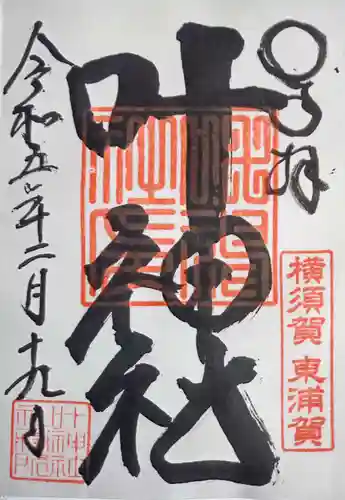 奉拝
横須賀 東浦賀
叶神社
令和五年二月十九日